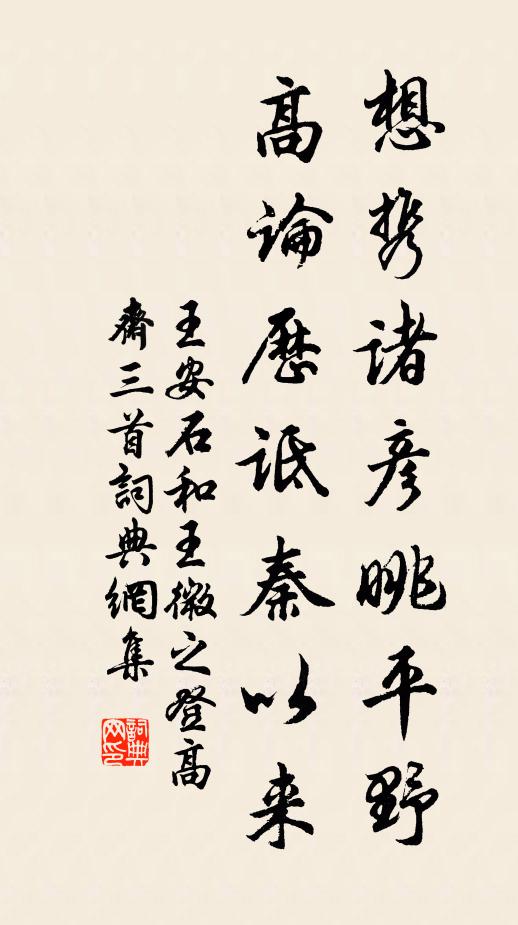 想携诸彦眺平野
高論歷詆秦以来
王安石和王微之登高
齋三首詞典網集
詞典
网印